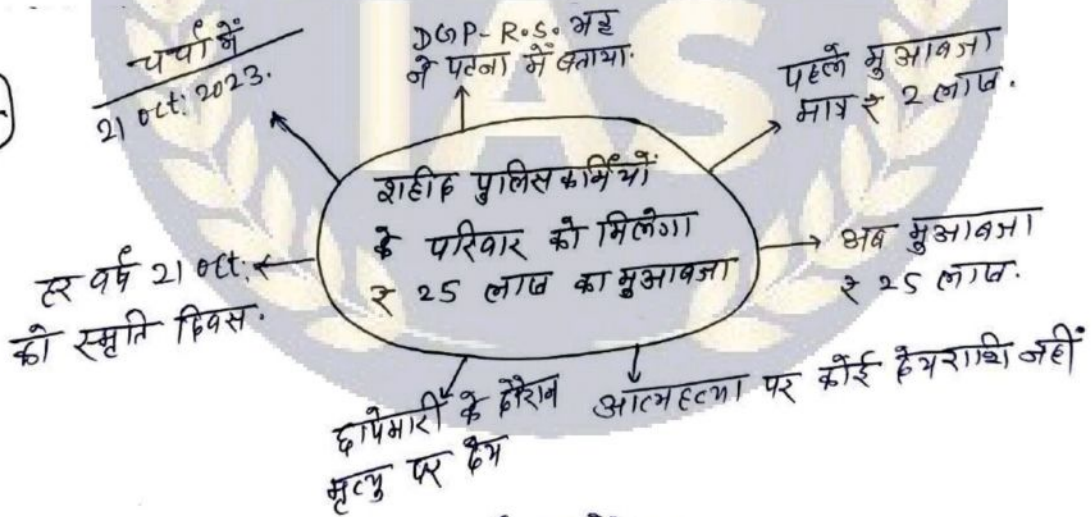 चर्चा में
21 oct: 2023.
DGP- R.S. भट्ट
ने पटना में बताया.
पहले मुआवजा
मात्र ₹ 2 लाख.
IAS
शहीद पुलिस कर्मियों
के परिवार को मिलेगा
₹ 25 लाख का मुआवजा
अब मुआवजा
₹ 25 लाख.
हर वर्ष 21 oct:
को स्मृति दिवस.
छापेमारी के दौरान
मृत्यु पर देय
आत्महत्या पर कोई देयराशि नहीं